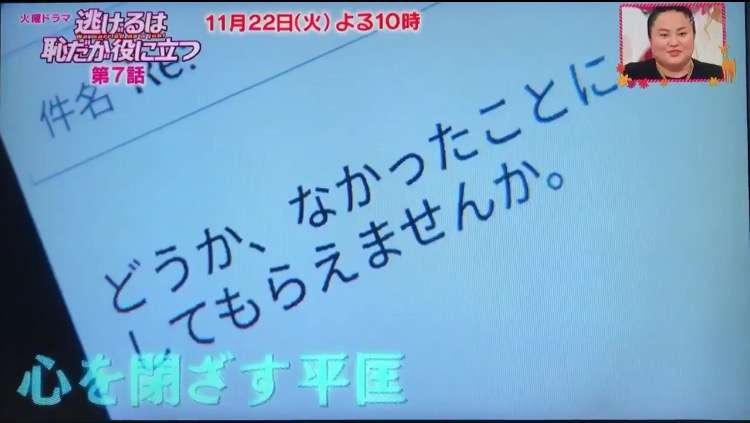 火曜ドラマ
逃げるは
恥だが役に立つ
第7話
11月22日(火)よる10時
件名 Re:
どうか、なかったことに
してもらえませんか。
心を閉ざす平匡